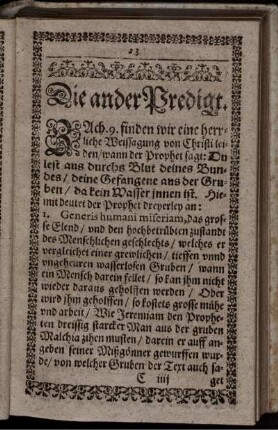 23
Die ander Predigt.
ZAch. 9. finden wir eine herr⸗
liche Weissagung von Christi lei⸗
den / wann der Prophet sagt: Du
lest aus durchs Blut deines Bun⸗
des / deine Gefangene aus der Gru⸗
ben / da kein Wasser innen ist. Hie⸗
mit deutet der Prophet dreyerley an:
1. Generis humani miseriam, das gros⸗
se Elend / und den hochbetrübten zustandt
des Menschlichen geschlechts / welches er
vergleichet einer grewlichen / tieffen vnnd
vngeheuren wasserlosen Gruben / wann
ein Mensch darein fellet / so kan jhm nicht
wieder daraus geholffen werden / Oder
wird jhm geholffen / so kostets grosse mühe
vnd arbeit / Wie Jeremiam den Prophe⸗
ten dreissig starcker Man aus der gruben
Malchia zihen musten / darein er auff an⸗
geben seiner Mißgönner geworffen wur⸗
de / von welcher Gruben der Text auch sa⸗
C iiij
get